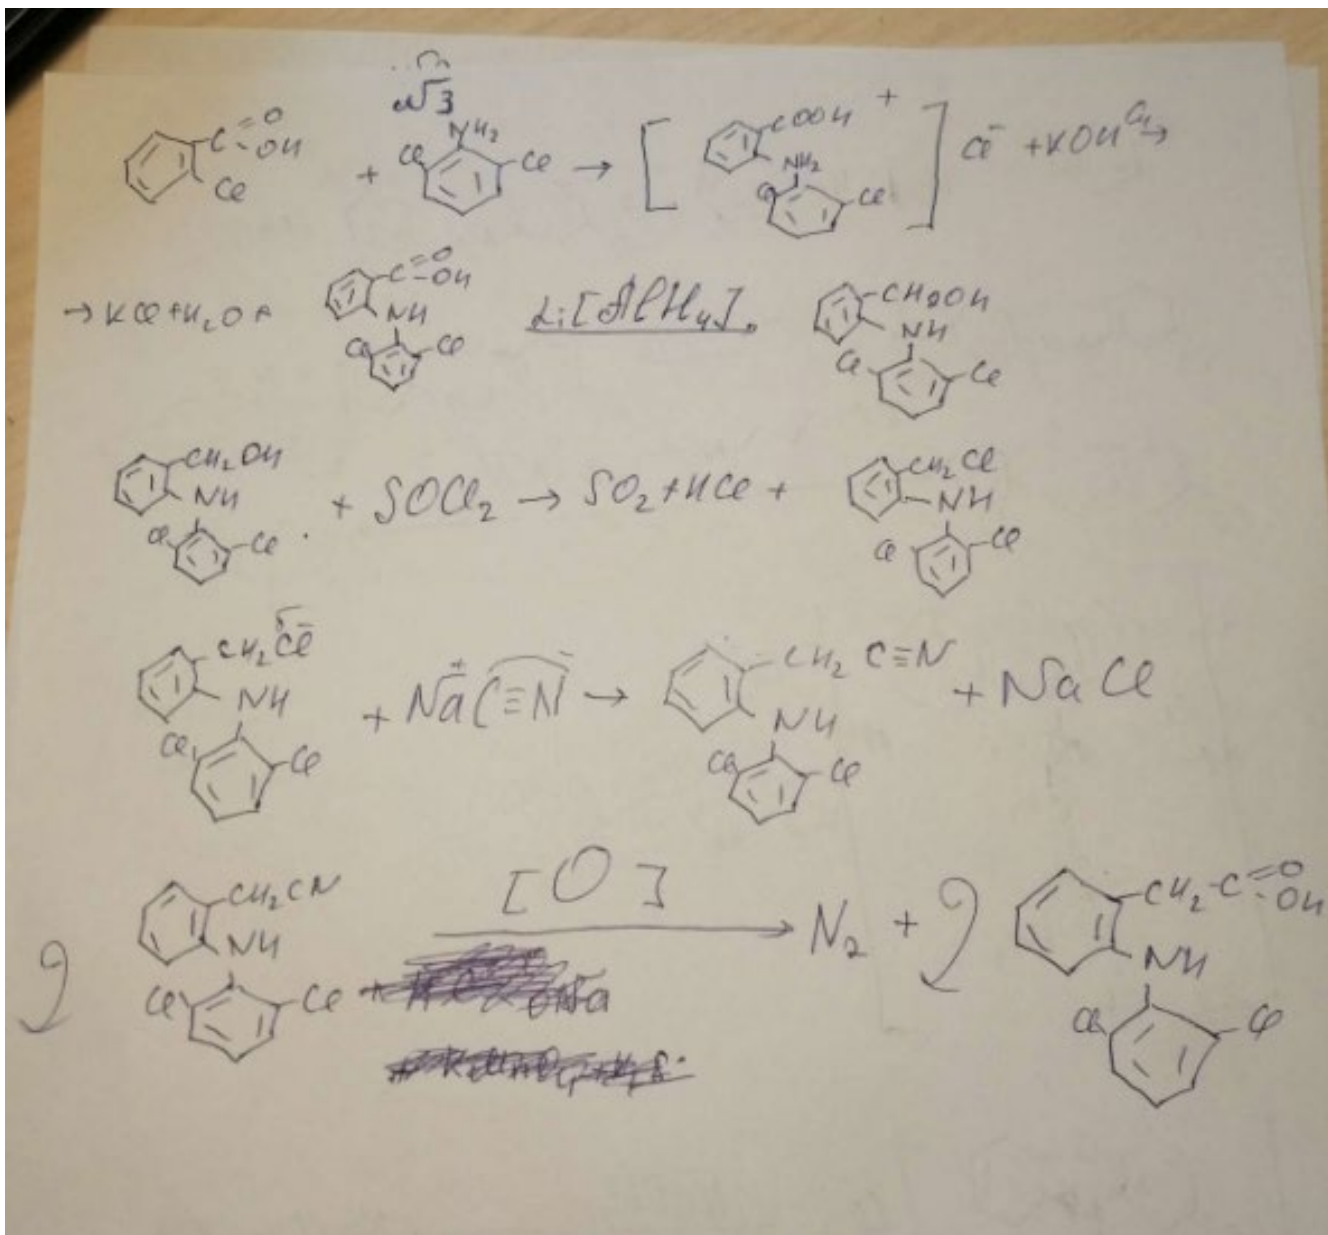 √3
C=O -OH Cl + NH₂ Cl Cl → [ COOH NH₂ Cl Cl ]⁺ Cl⁻ + KOH →
→ KCl + H₂O + C=O -OH NH Cl Cl Li[AlH₄] CH₂OH NH Cl Cl
CH₂OH NH Cl Cl + SOCl₂ → SO₂ + HCl + CH₂Cl NH Cl Cl
CH₂Cl NH Cl Cl + NaC≡N → CH₂ C≡N NH Cl Cl + NaCl
2 CH₂CN NH Cl Cl [O] → N₂ + 2 CH₂-C=O -OH NH Cl Cl